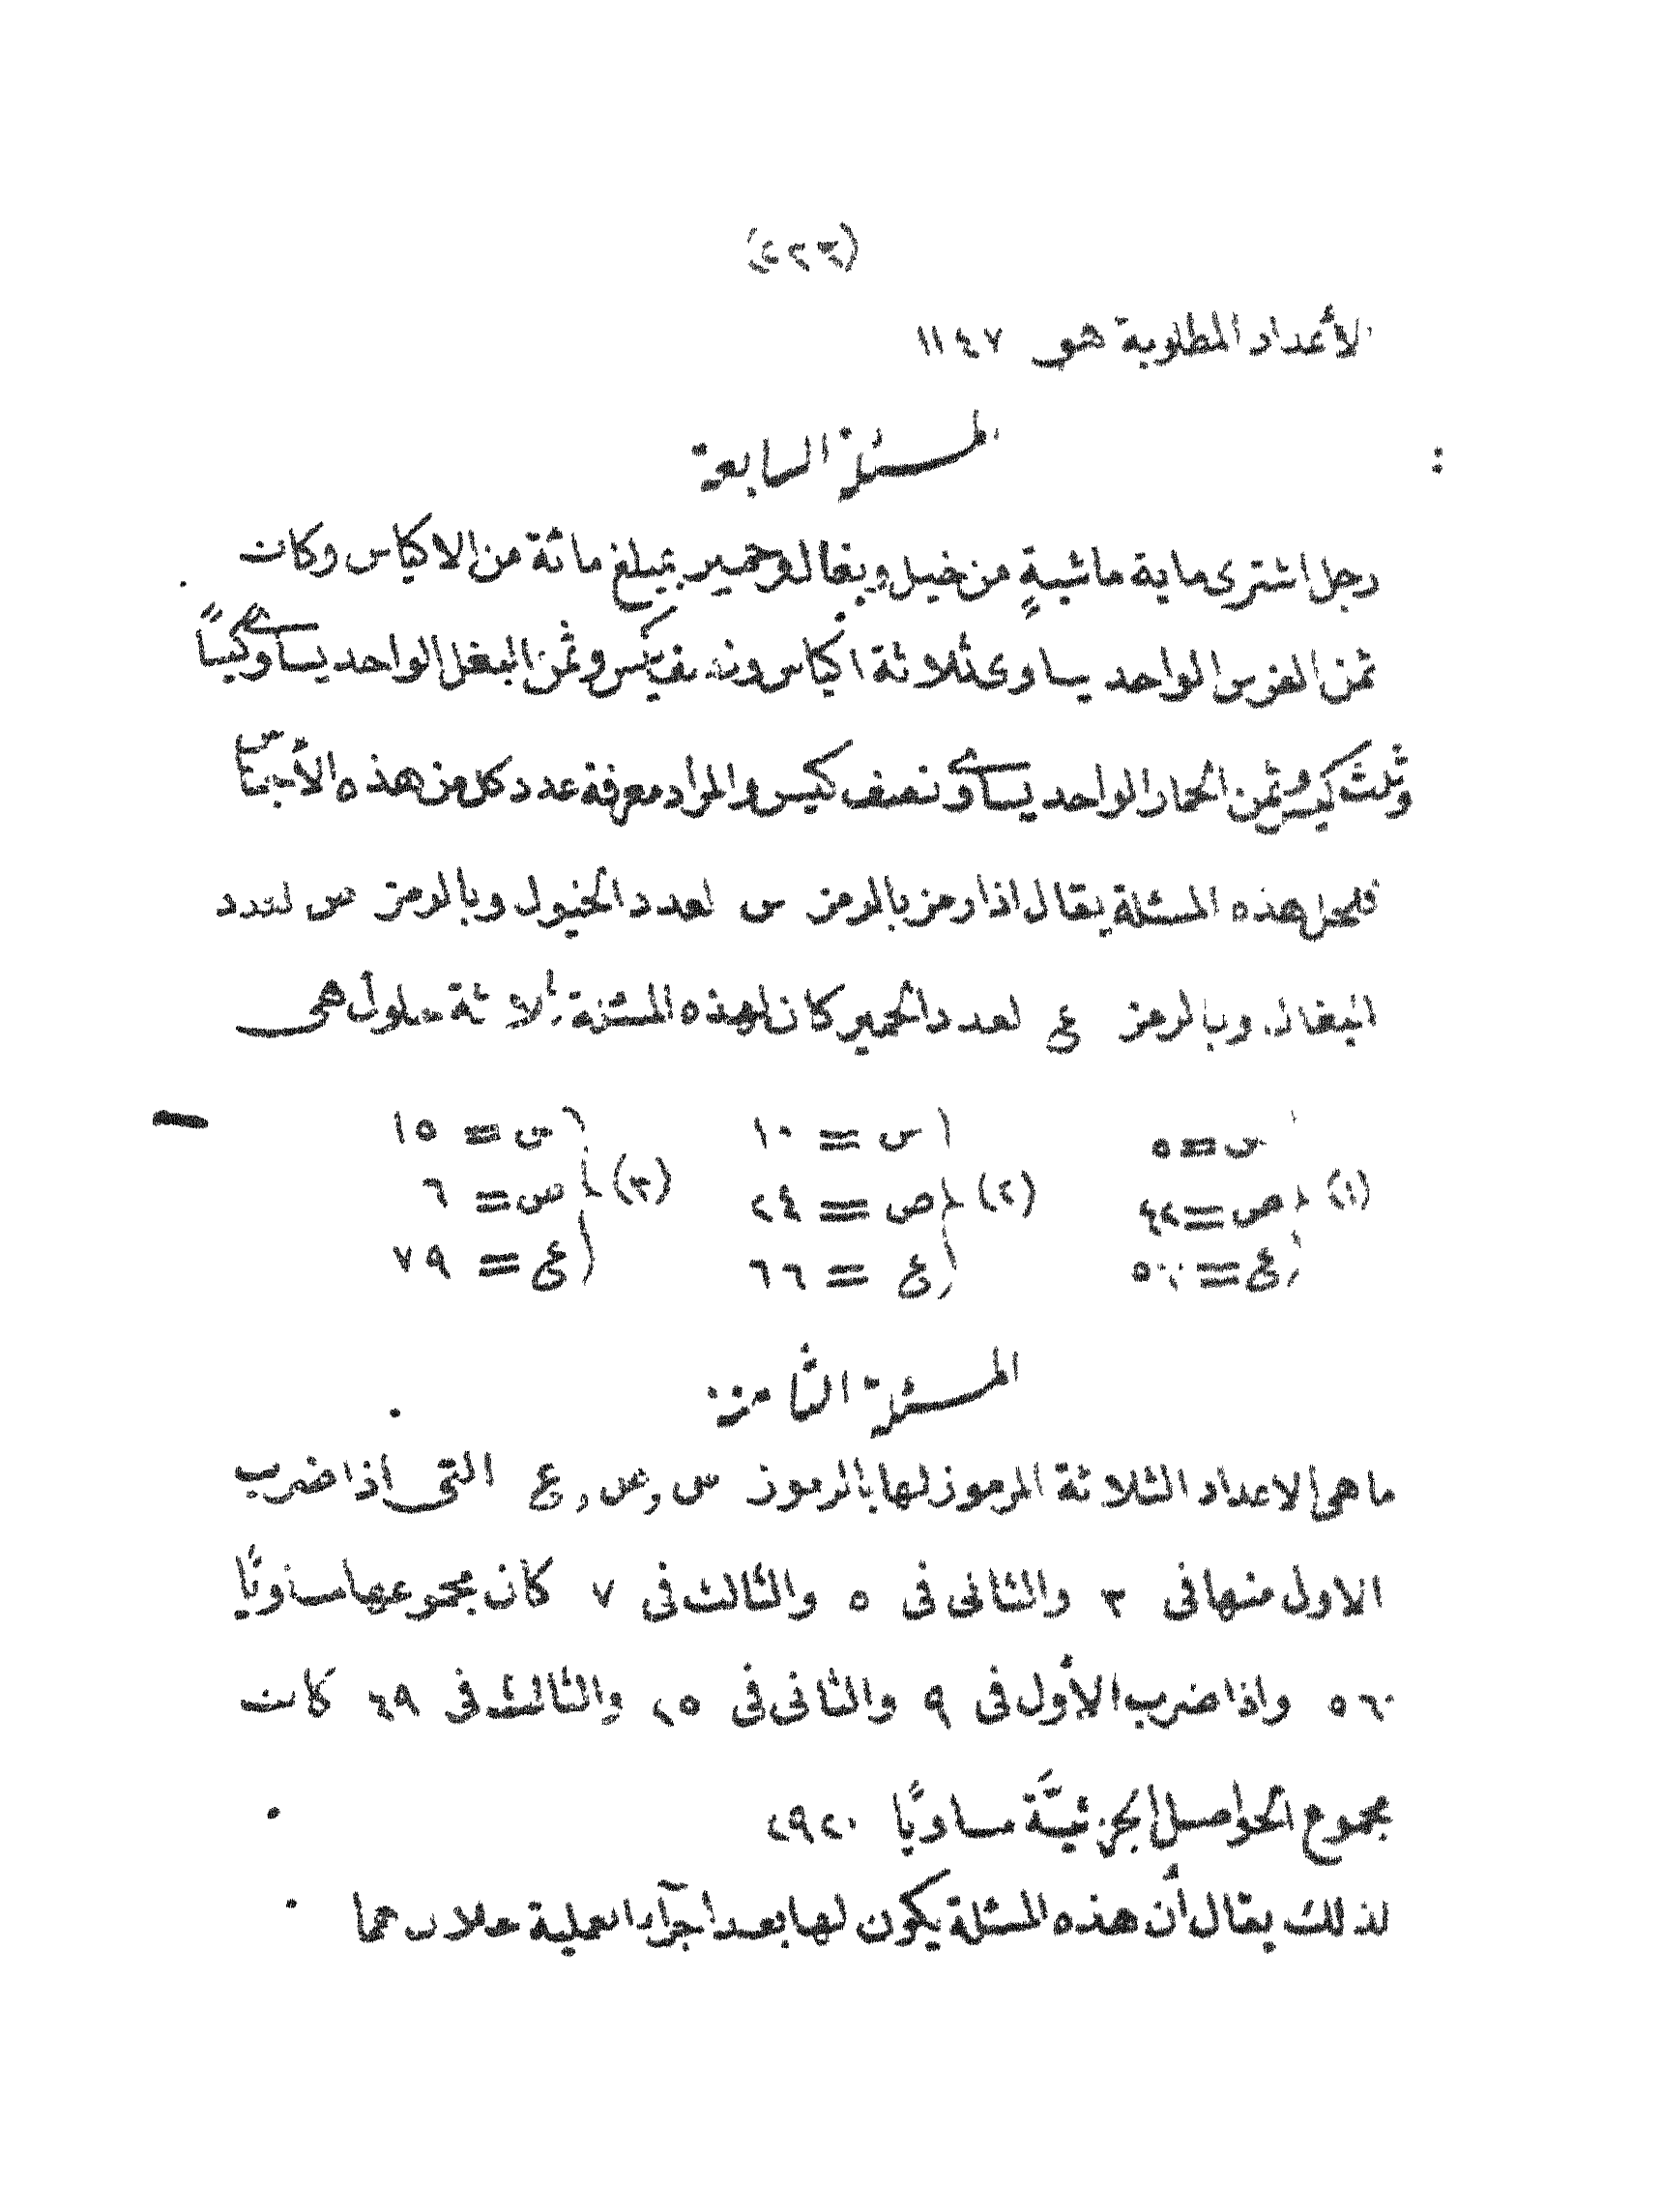 (٢٢٦)
الأعداد المطلوبة هو ١١٤٧
المسئلة السابعة
رجل اشترى ماية ماشيةٍ من خيل وبغال وحمير بمبلغ مائة من الاكياس وكان
ثمن الفرس الواحد يساوى ثلاثة اكياس ونصف كيس وثمن البغل الواحد يساوى كيسًا
وثلث كيس وثمن الحمار الواحد يساوى نصف كيس والمراد معرفة عدد كل من هذه الأجناس
فلحل هذه المسئلة يقال اذا رمز بالرمز س لعدد الخيول وبالرمز ص لعدد
البغال وبالرمز ع لعدد الحمير كان لهذه المسئلة ثلاثة حلول هى
(١) س = ٥ (٢) س = ١٠ (٣) س = ١٥
ص = ٤٢ ص = ٢٤ ص = ٦
ع = ٥٣ ع = ٦٦ ع = ٧٩
المسئلة الثامنة
ما هى الاعداد الثلاثة المرموز لها بالرموز س و ص و ع التى اذا ضرب
الاول منها فى ٣ والثانى فى ٥ والثالث فى ٧ كان مجموعها مساويًا
٥٦٠ واذا ضرب الأول فى ٩ والثانى فى ٢٥ والثالث فى ٤٩ كان
مجموع الحواصل الجزئيَّة مساويًا ٢٩٢٠
لذلك يقال أن هذه المسئلة يكون لها بعد أجرآء العملية حلان هما